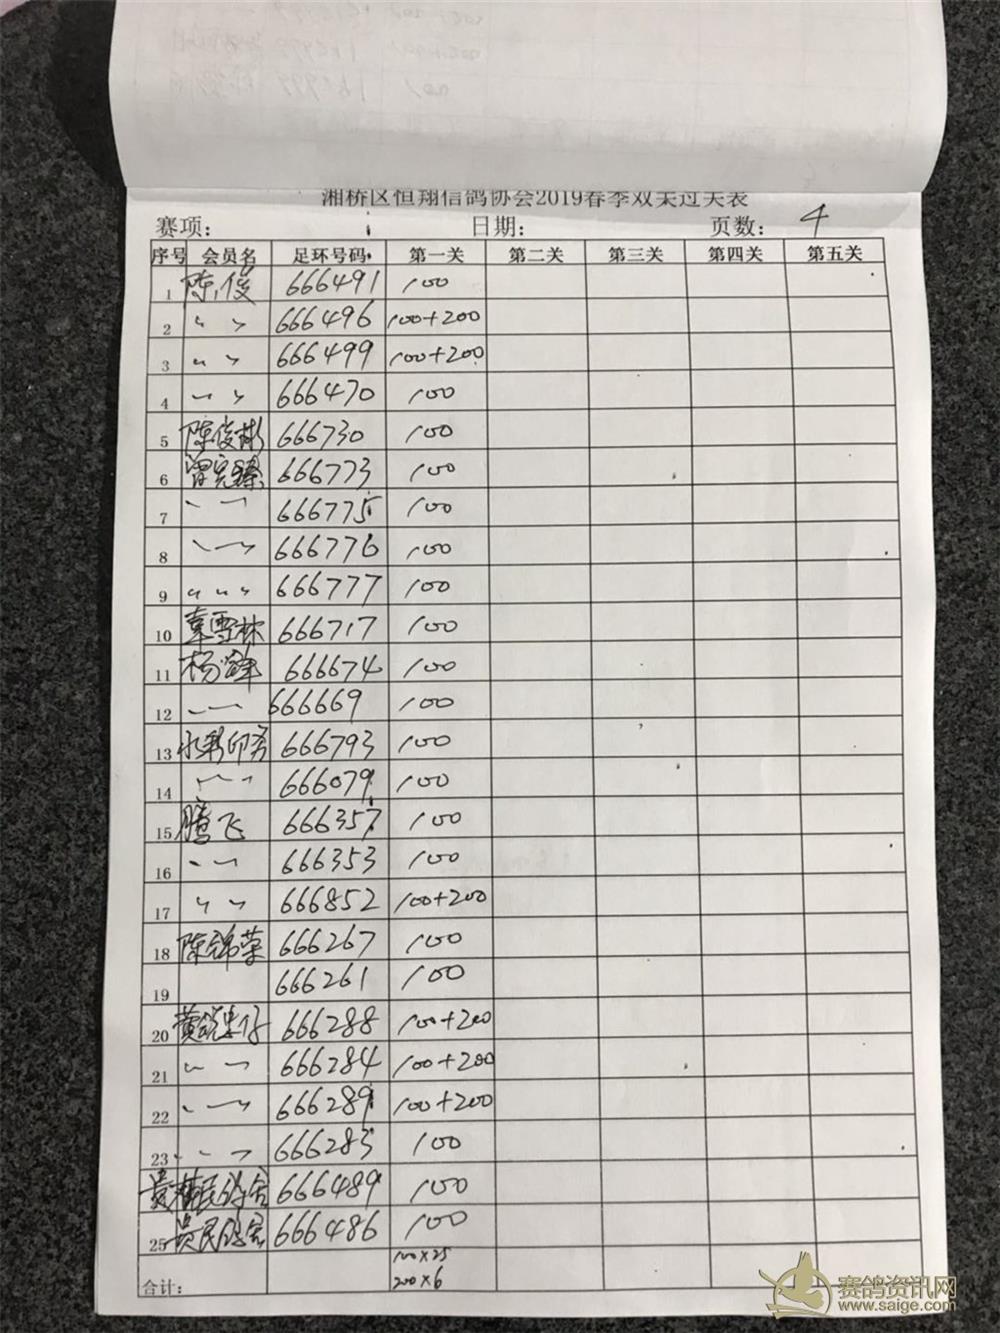 湘桥区恒翔信鸽协会2019春季双关过关表
赛项: 日期: 页数: 4
序号 会员名 足环号码 第一关 第二关 第三关 第四关 第五关
1 陈俊 666491 100
2 〃 〃 666496 100+200
3 〃 〃 666499 100+200
4 〃 〃 666470 100
5 陈俊彬 666730 100
6 666773 100
7 〃 〃 666775 100
8 〃 〃 666776 100
9 〃 〃 〃 666777 100
10 雪林 666717 100
11 杨 666674 100
12 〃 〃 666669 100
13 水彩印务 666793 100
14 〃 〃 666079 100
15 腾飞 666357 100
16 〃 〃 666353 100
17 〃 〃 666852 100+200
18 陈锦荣 666267 100
19 666261 100
20 黄 仔 666288 100+200
21 〃 〃 666284 100+200
22 〃 〃 666289 100+200
23 〃 〃 〃 666283 100
民鸽舍 666489 100
25 民鸽舍 666486 100
合计: 100×25
200×6
赛鸽资讯网
www.saige.com